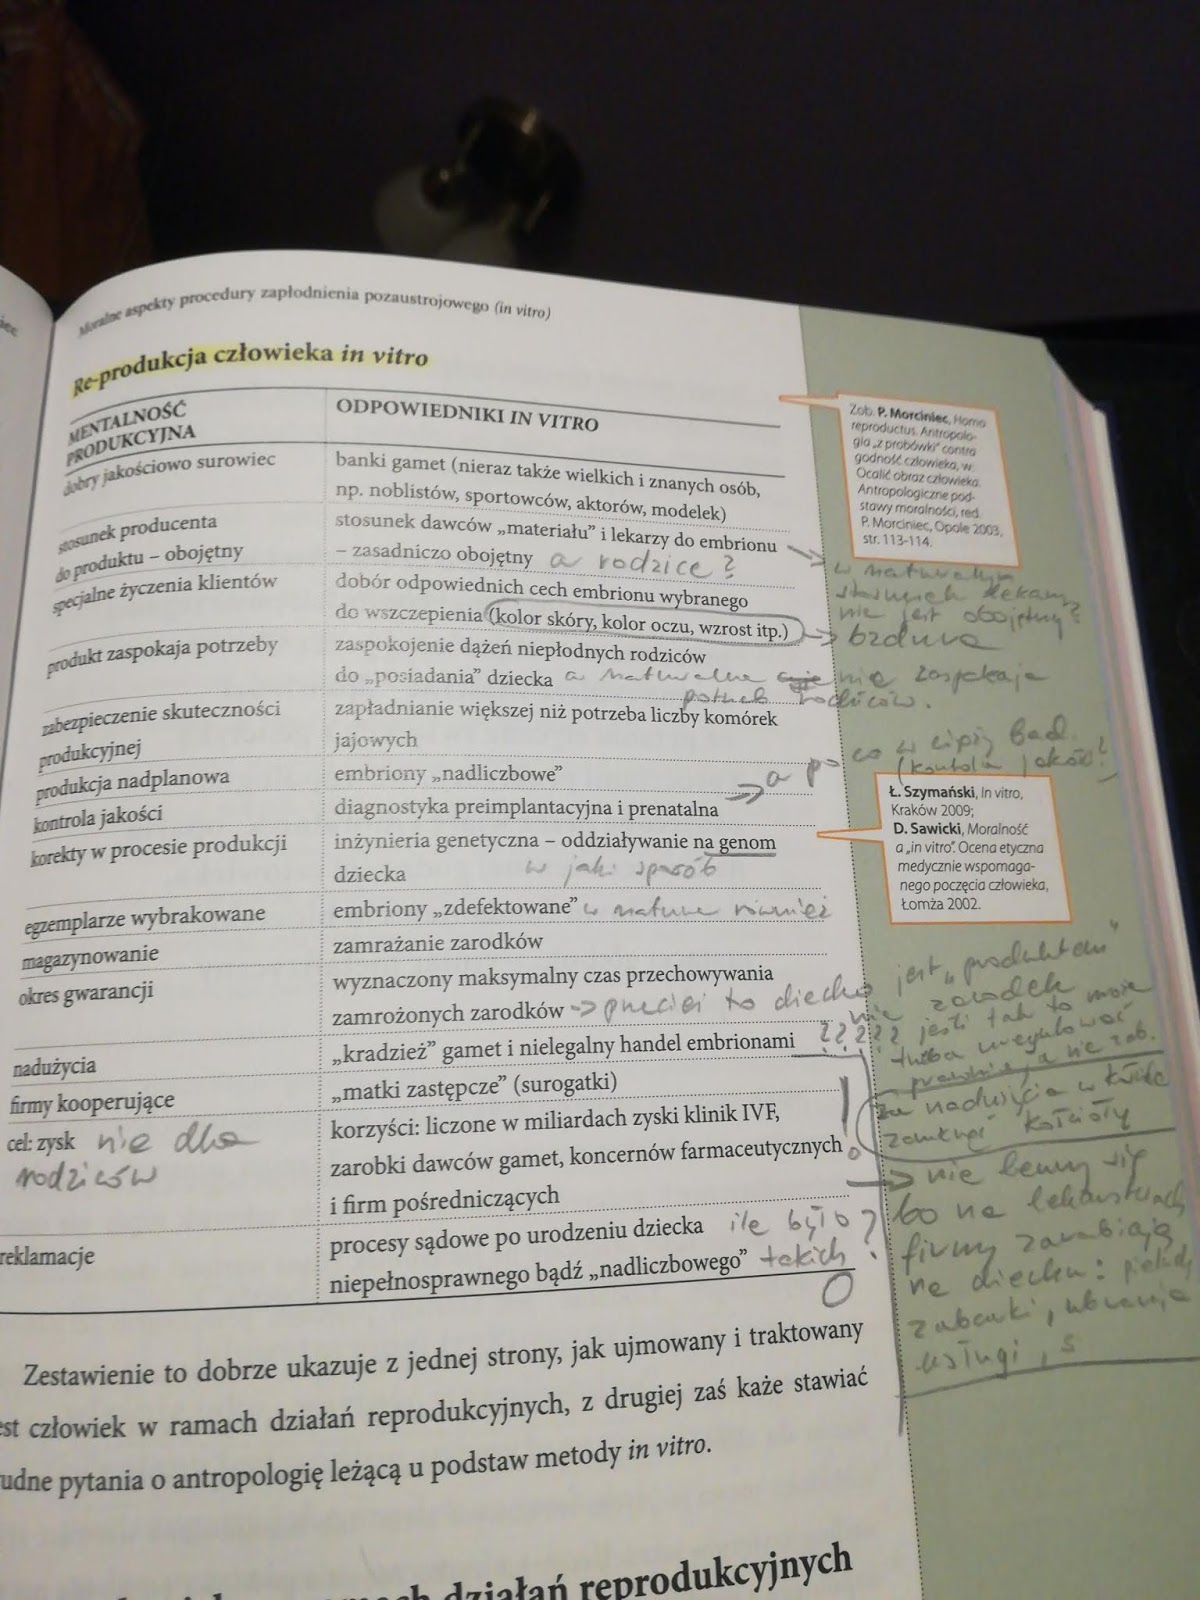 Moralne aspekty procedury zapłodnienia pozaustrojowego (in vitro)
Re-produkcja człowieka in vitro
MENTALNOŚĆ
PRODUKCYJNA
ODPOWIEDNIKI IN VITRO
dobry jakościowo surowiec
banki gamet (nieraz także wielkich i znanych osób,
np. noblistów, sportowców, aktorów, modelek)
stosunek producenta
do produktu – obojętny
stosunek dawców „materiału” i lekarzy do embrionu
– zasadniczo obojętny a rodzice?
specjalne życzenia klientów
dobór odpowiednich cech embrionu wybranego
do wszczepienia (kolor skóry, kolor oczu, wzrost itp.)
produkt zaspokaja potrzeby
zaspokojenie dążeń niepłodnych rodziców
do „posiadania” dziecka a naturalne nie zaspokaja
potrzeb rodziców.
zabezpieczenie skuteczności
produkcyjnej
zapładnianie większej niż potrzeba liczby komórek
jajowych
produkcja nadplanowa
embriony „nadliczbowe”
kontrola jakości
diagnostyka preimplantacyjna i prenatalna
korekty w procesie produkcji
inżynieria genetyczna – oddziaływanie na genom
dziecka w jaki sposób
egzemplarze wybrakowane
embriony „zdefektowane” w naturze również
magazynowanie
zamrażanie zarodków
okres gwarancji
wyznaczony maksymalny czas przechowywania
zamrożonych zarodków → przecież to dziecko jest „produktem”
nie zarodek
nadużycia
„kradzież” gamet i nielegalny handel embrionami ?????
firmy kooperujące
„matki zastępcze” (surogatki)
cel: zysk nie dla
rodziców
korzyści: liczone w miliardach zyski klinik IVF,
zarobki dawców gamet, koncernów farmaceutycznych
i firm pośredniczących
reklamacje
procesy sądowe po urodzeniu dziecka ile było
niepełnosprawnego bądź „nadliczbowego” takich?
0
Zestawienie to dobrze ukazuje z jednej strony, jak ujmowany i traktowany
est człowiek w ramach działań reprodukcyjnych, z drugiej zaś każe stawiać
udne pytania o antropologię leżącą u podstaw metody in vitro.
działań reprodukcyjnych
Zob. P. Morciniec, Homo
reproductus. Antropolo-
gia „z probówki” contra
godność człowieka, w:
Ocalić obraz człowieka.
Antropologiczne pod-
stawy moralności, red.
P. Morciniec, Opole 2003,
str. 113-114.
w naturalnym
lekarz
nie jest obojętny?
→ bzdura
a po co w ciąży bad.
(kontrola jakości?)
Ł. Szymański, In vitro,
Kraków 2009;
D. Sawicki, Moralność
a „in vitro”. Ocena etyczna
medycznie wspomaga-
nego poczęcia człowieka,
Łomża 2002.
jeśli tak to może
trzeba uregulować
prawnie, a nie zab.
za nadużycia w
zamknąć kościoły
→ nie
bo na lekarstwach
firmy zarabiają
na dziecku:
zabawki, ubrania
usługi,